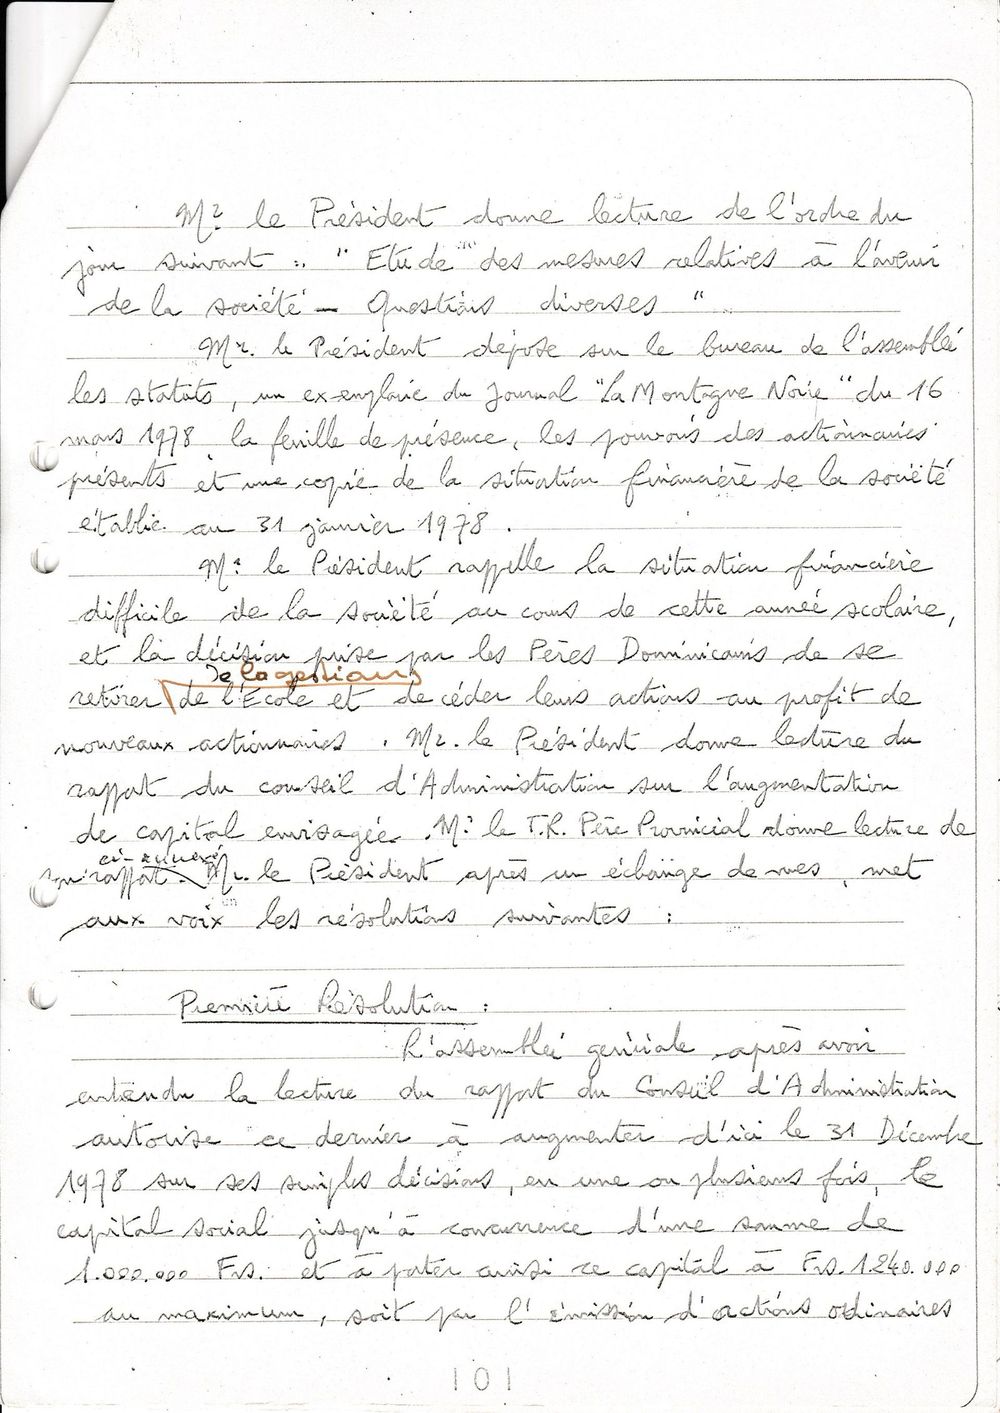 Mr le Président donne lecture de l'ordre du
jour suivant : " Etude des mesures relatives à l'avenir
de la société – Questions diverses "
Mr. le Président dépose sur le bureau de l'assemblée
les statuts, un exemplaire du Journal "La Montagne Noire" du 16
mars 1978, la feuille de présence, les pouvoirs des actionnaires
présents et une copie de la situation financière de la société
établie au 31 janvier 1978.
Mr le Président rappelle la situation financière
difficile de la société au cours de cette année scolaire,
et la décision prise par les Pères Dominicains de se
de la gestion
retirer de l'Ecole et de céder leurs actions au profit de
nouveaux actionnaires. Mr. le Président donne lecture du
rapport du conseil d'Administration sur l'augmentation
de capital envisagée. Mr le T.R. Père Provincial donne lecture de
ci-annexé
son rapport. Mr. le Président après un échange de vues, met
aux voix les résolutions suivantes :
Première Résolution :
L'assemblée générale après avoir
entendu la lecture du rapport du Conseil d'Administration
autorise ce dernier à augmenter d'ici le 31 Décembre
1978 sur ses simples décisions, en une ou plusieurs fois, le
capital social jusqu'à concurrence d'une somme de
1.000.000 Frs. et à porter ainsi ce capital à Frs. 1.240.000
au maximum, soit par l'émission d'actions ordinaires
101